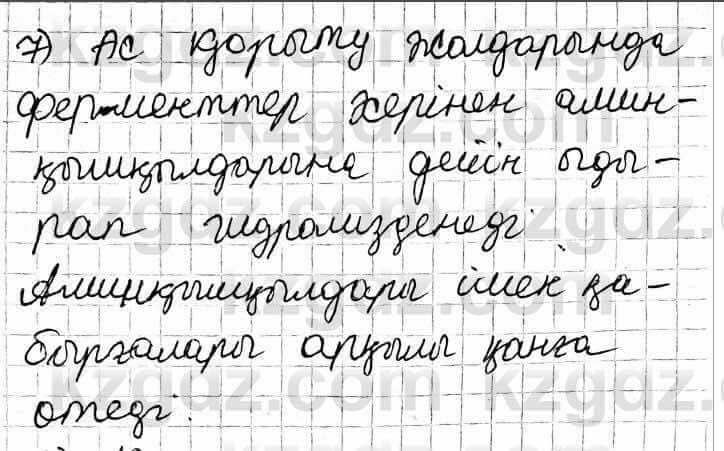 7) Ас қорыту жолдарында
ферменттер әсерінен амин-
қышқылдарына дейін ыды-
рап гидролизденеді.
Аминқышқылдары ішек қа-
бырғалары арқылы қанға
өтеді.
kzgdz.com